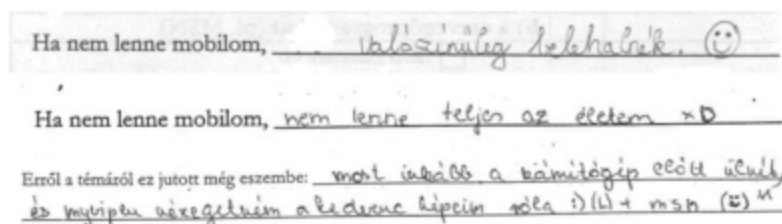 Ha nem lenne mobilom, . . valószinüleg belehalnék. ☺
Ha nem lenne mobilom, nem lenne teljes az életem xD
Erről a témáról ez jutott még eszembe: most inkább a számitógép előtt ülnék,
és myvipen nézegetném a kedvenc képeim róla :) (L) + msn (☺)